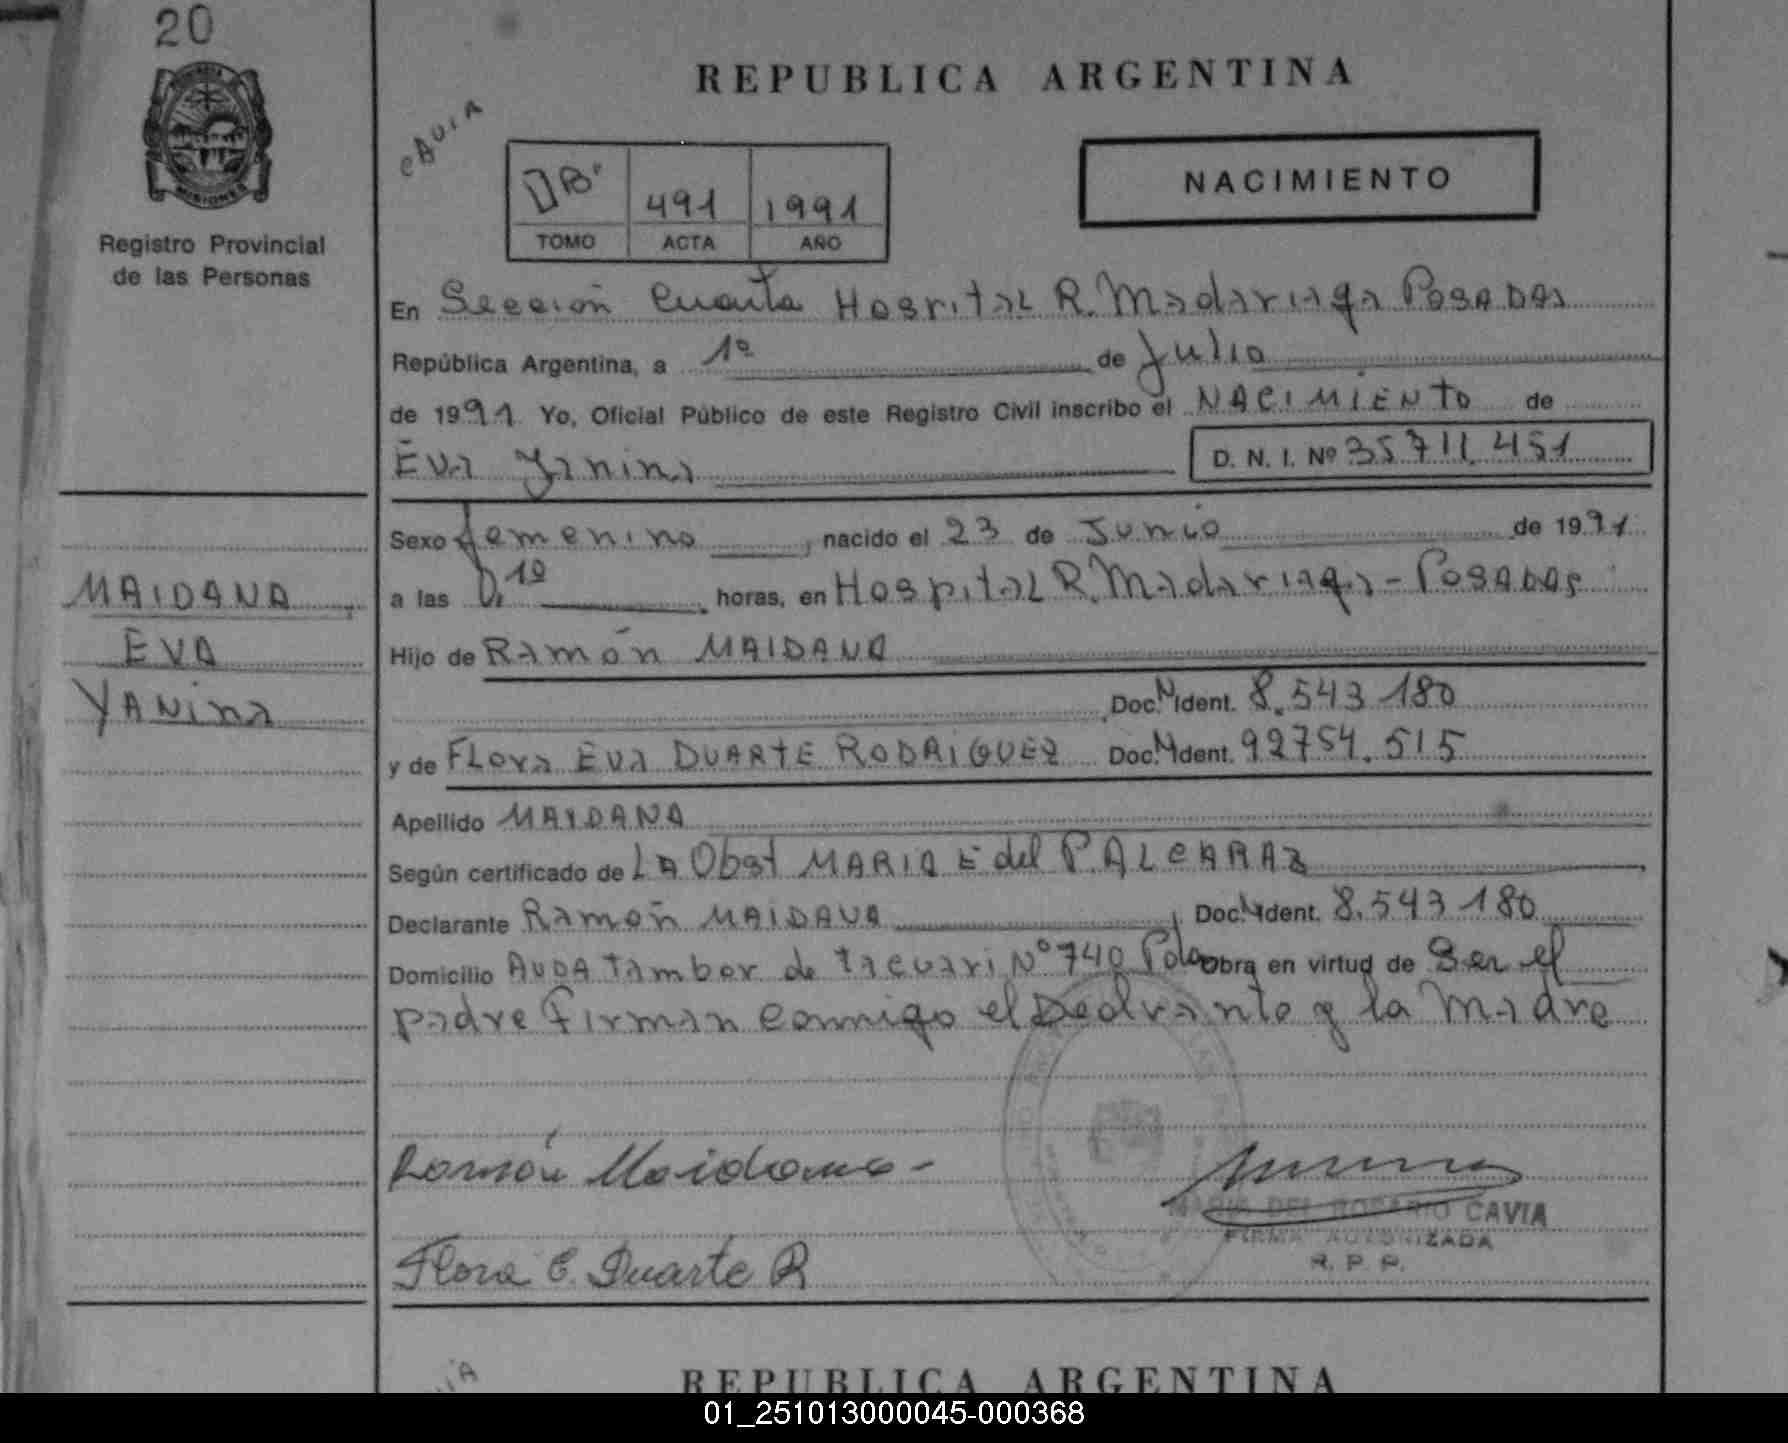 20
REPUBLICA ARGENTINA
CAVIA
MISIONES
Registro Provincial
de las Personas
491 1991
TOMO ACTA AÑO
NACIMIENTO
En Sección Cuarta Hospital R. Madariaga Posadas
República Argentina, a 1º de Julio
de 1991 Yo, Oficial Público de este Registro Civil inscribo el NACIMIENTO de
Eva Yanina D. N. I. Nº 35711.451
Sexo femenino, nacido el 23 de Junio de 1991
a las 0,10 horas, en Hospital R. Madariaga - Posadas
Hijo de Ramón MAIDANA
Doc. N Ident. 8.543 180
y de Flora Eva DUARTE RODRIGUEZ Doc. N Ident. 92754.515
Apellido MAIDANA
Según certificado de LA Obst MARIA E del P. ALCARAZ
Declarante Ramón MAIDANA, Doc. N Ident. 8.543 180
Domicilio AVDA Tambor de Tacuari Nº 740 Pdas Obra en virtud de Ser el
padre Firman conmigo el Declarante y la Madre
MAIDANA,
EVA
YANina
Ramón Maidana -
MARIA DEL ROSARIO CAVIA
FIRMA AUTORIZADA
R. P. P.
Flora E. Duarte R
REPUBLICA ARGENTINA
01_251013000045-000368